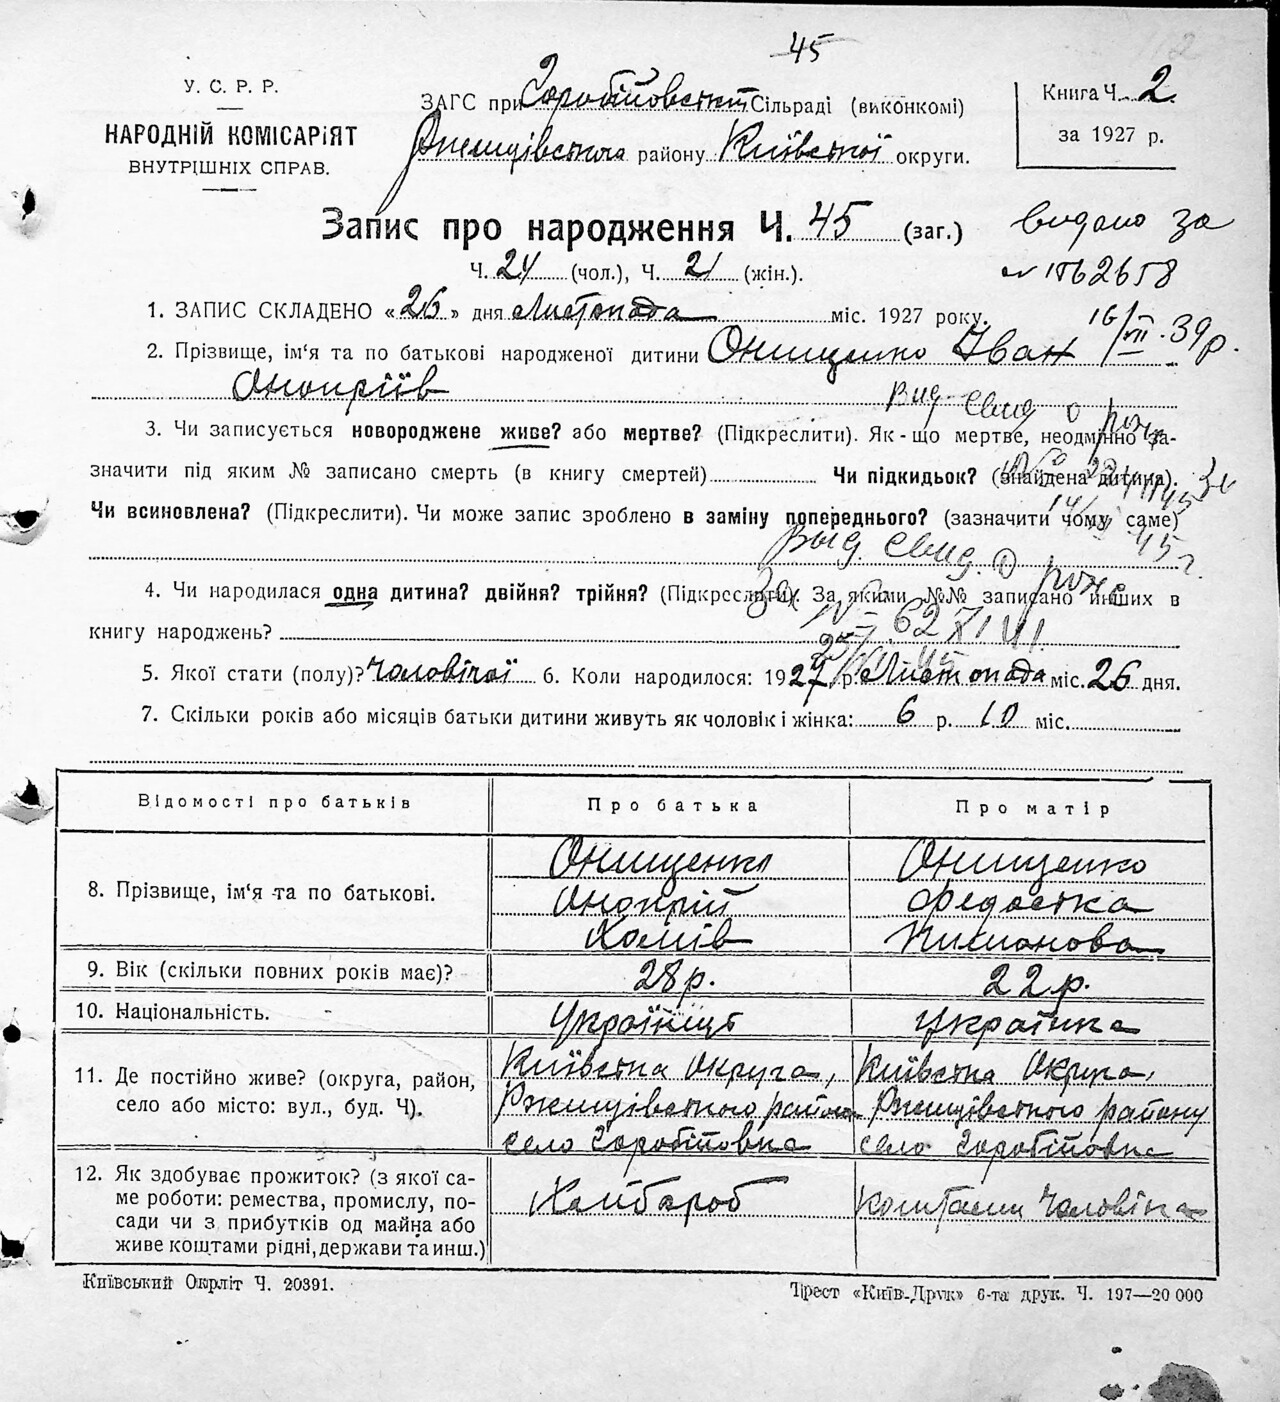 45
У. С. Р. Р.
НАРОДНІЙ КОМІСАРІЯТ
ВНУТРІШНІХ СПРАВ.
ЗАГС при Горобіївській Сільраді (виконкомі)
Ржищівського району Київської округи.
Книга Ч. 2
за 1927 р.
Запис про народження Ч. 45 (заг.)
Ч. 24 (чол.), Ч. 21 (жін.).
видано за
№ 1562658
16/VII 39 р.
1. ЗАПИС СКЛАДЕНО «26» дня Листопада міс. 1927 року.
2. Прізвище, ім‘я та по батькові народженої дитини Онищенко Іван
Онопріїв
Вид. свид о рожд
3. Чи записується новороджене живе? або мертве? (Підкреслити). Як-що мертве, неодмінно за-
значити під яким № записано смерть (в книгу смертей) Чи підкидьок? (знайдена дитина).
Чи всиновлена? (Підкреслити). Чи може запис зроблено в заміну попереднього? (зазначити чому саме)
Выд. свид. о рожд
4. Чи народилася одна дитина? двійня? трійня? (Підкреслити). За якими №№ записано инших в
книгу народжень?
5. Якої стати (полу)? Чоловічої 6. Коли народилося: 1927 р. Листопада міс. 26 дня.
7. Скільки років або місяців батьки дитини живуть як чоловік і жінка: 6 р. 10 міс.
Відомості про батьків Про батька Про матір
8. Прізвище, ім‘я та по батькові.
Онищенко Онищенко
Онопрій Федоська
Хомів Пилипова
9. Вік (скільки повних років має)? 28 р. 22 р.
10. Національність. Українець Українка
11. Де постійно живе? (округа, район,
село або місто: вул., буд. Ч).
Київська Округа, Київська Округа,
Ржищівського району Ржищівського району
село Горобіївка село Горобіївка
12. Як здобуває прожиток? (з якої са-
ме роботи: ремества, промислу, по-
сади чи з прибутків од майна або
живе коштами рідні, держави та инш.)
Хлібороб Коштами Чоловіка
Київський Окрліт Ч. 20391.
Трест «Київ-Друк» 6-та друк. Ч. 197—20 000